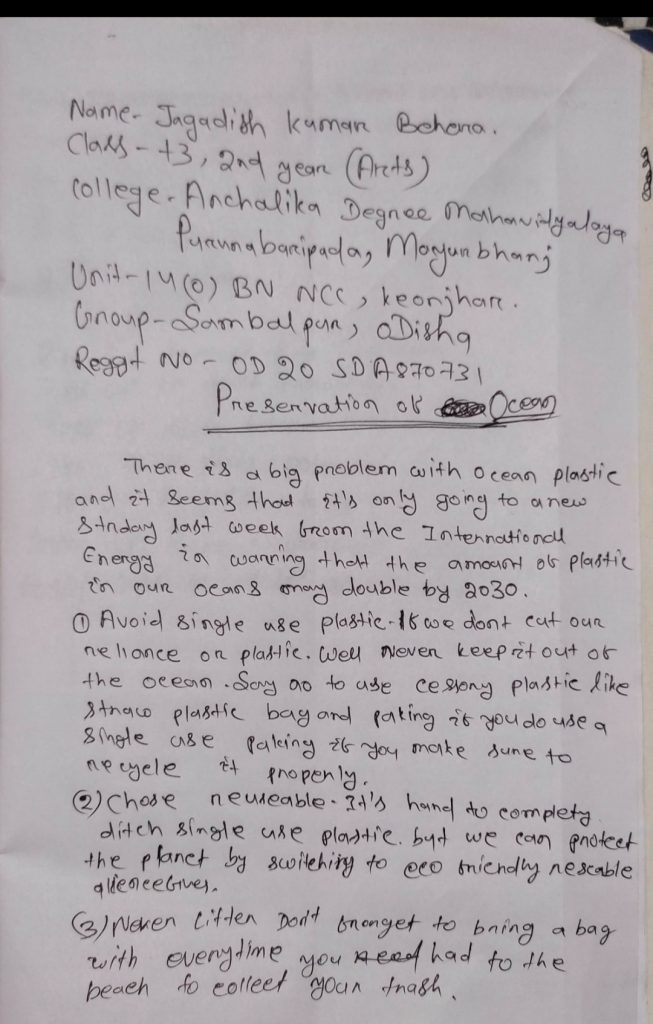 Name- Jagadish Kumar Behera.
Class - +3, 2nd year (Arts)
College- Anchalika Degree Mahavidyalaya
Purunabaripada, Mayurbhanj
Unit-14(O) BN NCC, keonjhar.
Group-Sambalpur, ODisha
Reggt NO - OD 20 SDA870731
Preservation of Ocean
There is a big problem with ocean plastic
and it seems that it's only going to a new
Strday last week from the International
Energy in warring that the amount of plastic
in our oceans may double by 2030.
① Avoid single use plastic-If we dont cut our
reliance on plastic. Well Never keep it out of
the ocean. Say no to use plastic like
straw plastic bag and paking if you do use a
single use paking if you make sure to
recycle it properly.
② Chose reuseable. It's hard to complety
ditch single use plastic. but we can protect
the planet by switching to eco friendly
③ Never litter Don't fronget to bring a bag
with everytime you had to the
beach to collect your trash.